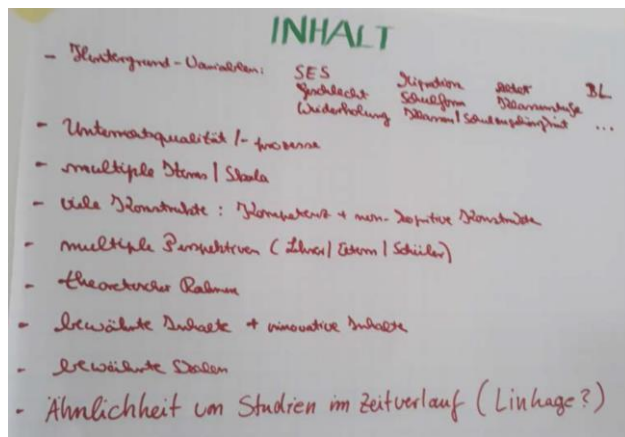 INHALT
- Hintergrund-Variablen: SES Migration Alter BL
Geschlecht Schulform
Wiederholung Klassen/Schul ...
- Unterrichtsqualität/-prozesse
- multiple Items/Skala
- viele Konstrukte: Kompetenz + non-kognitive Konstrukte
- multiple Perspektiven (Lehrer/Eltern/Schüler)
- theoretischer Rahmen
- bewährte Inhalte + innovative Inhalte
- bewährte Skalen
- Ähnlichkeit von Studien im Zeitverlauf (Linkage?)